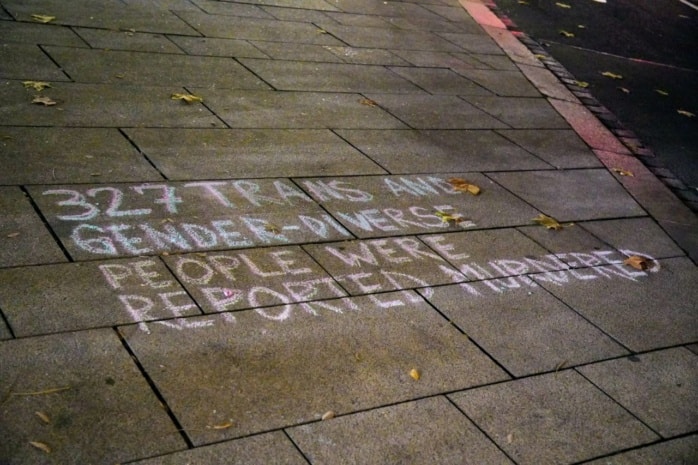 327 TRANS AND
GENDER-DIVERSE
PEOPLE WERE
REPORTED MURDERED